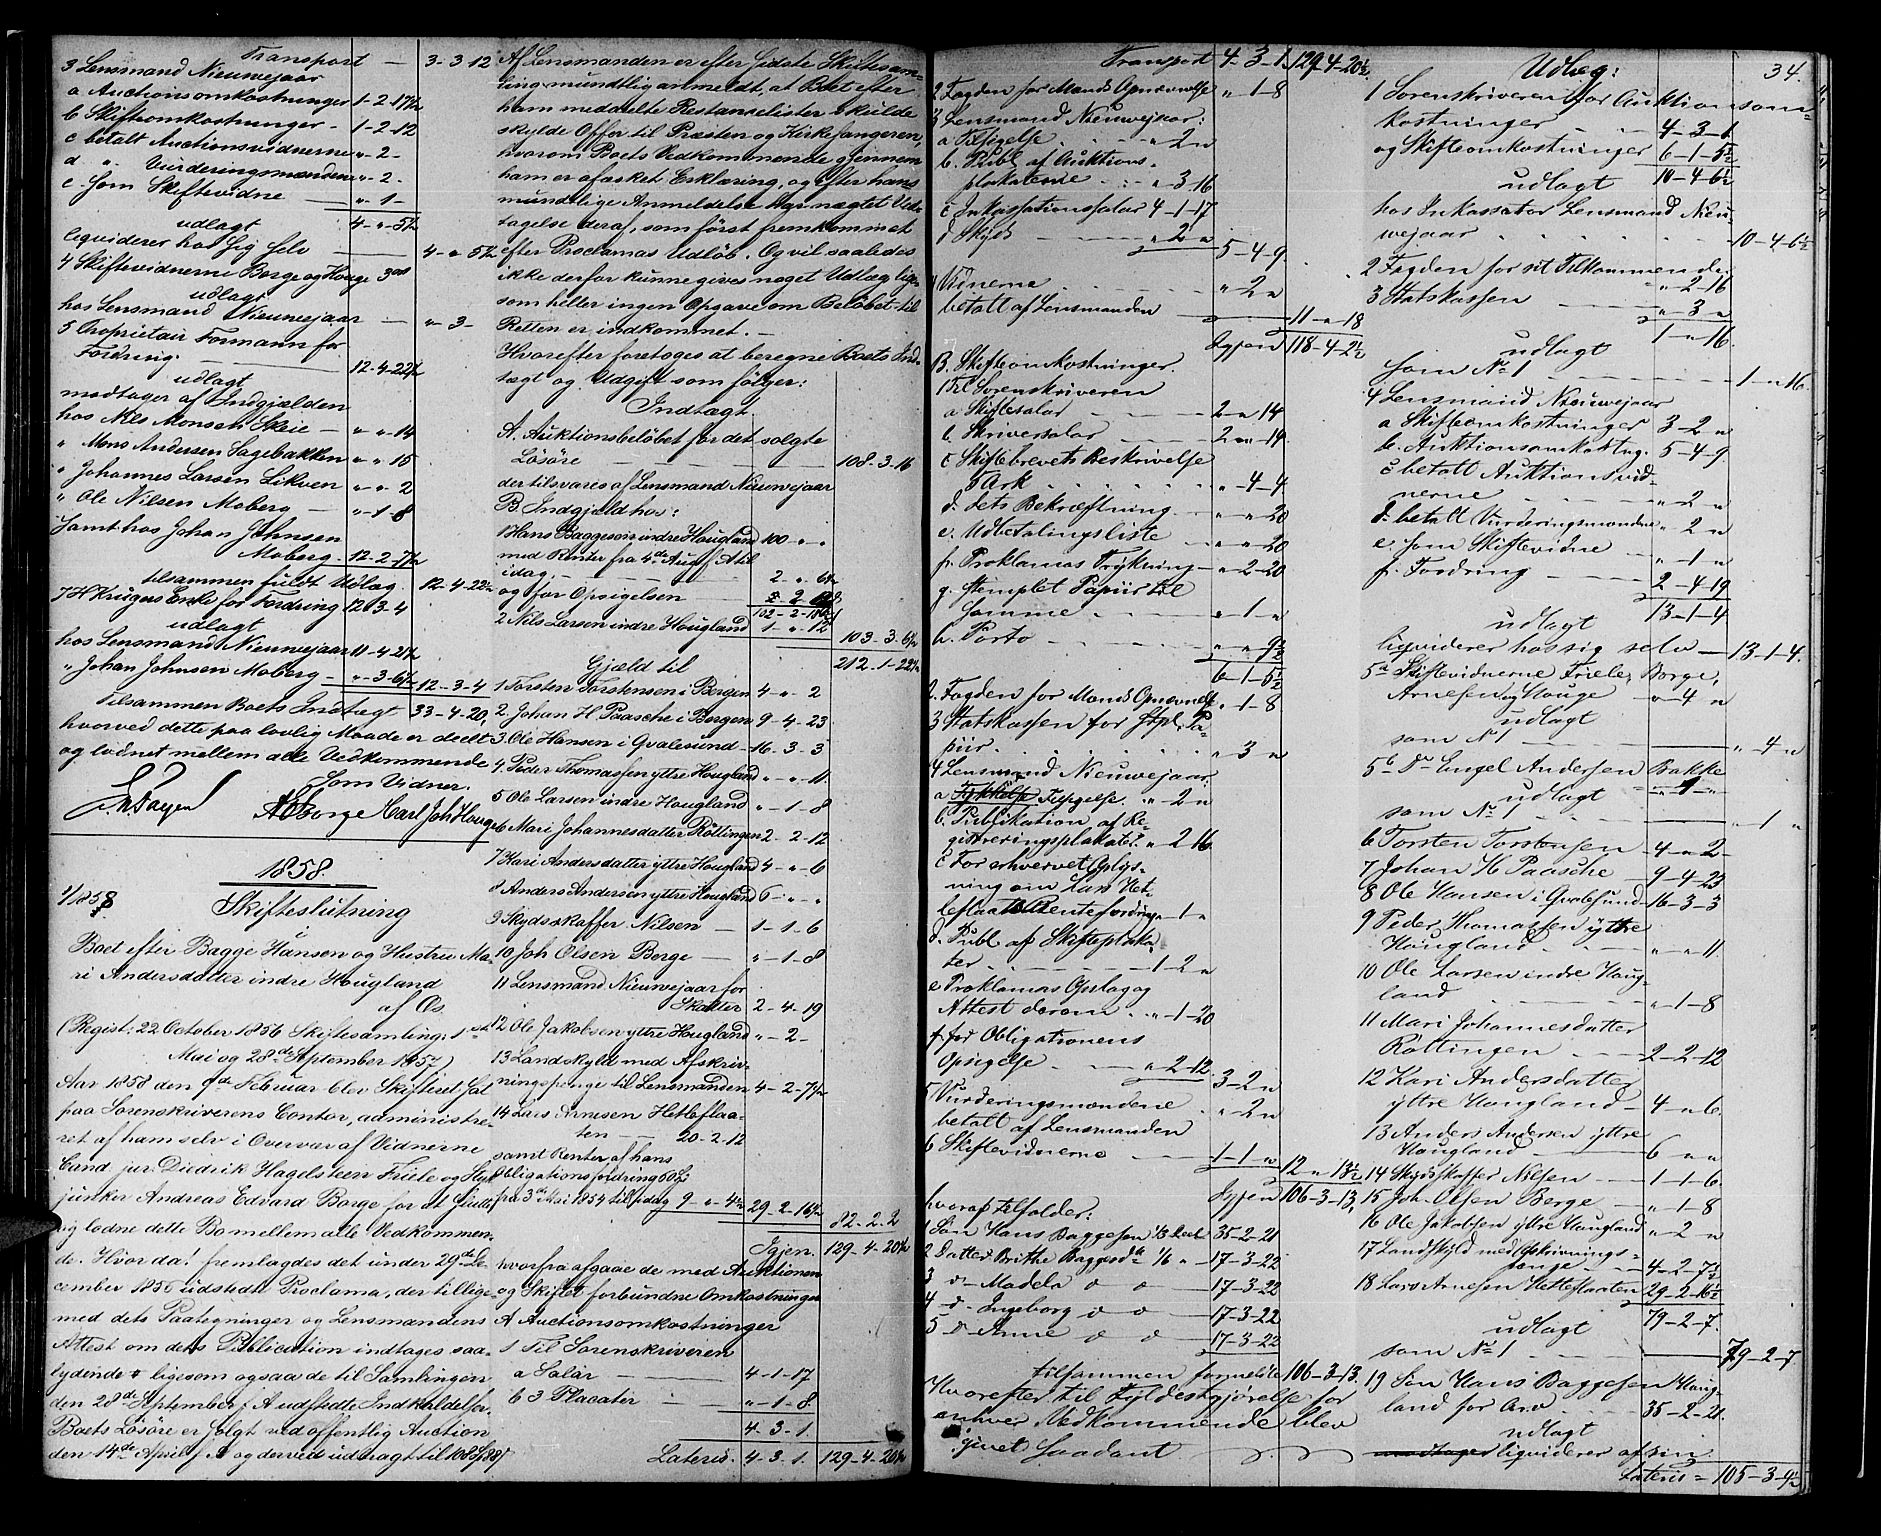 Transport — 3-3-12
3 Lensmand Nieuwejaar
a Auctionsomkostninger 1-2-17½
b Skifteomkostninger - 1-2-12
c betalt Auctionsvidnerne „-2-
d „ Vurderingsmændene „-2-
e. som Skiftevidne — „-1-
udlagt 4-„-5½
liqviderer hos sig selv — 4-„-5½
4 Skiftevidnerne Borge og Houge 3 ort
udlagt
hos Lensmand Nieuwejaar — „-3-
5 Proprietair Formann for
Fordring. — 12-4-22½
udlagt
modtager af Indgjælden
hos Nils Monsen Skeie — „-„-14
„ Mons Andersen Sagebakken „-„-15
„ Johannes Larsen Likven „-„-2
„ Ole Nilsen Moberg — „-1-8
samt hos Johan Johnsen
Moberg. 12-2-7½
tilsammen fuldt Udlag 12-4-22½
7 H Krugers Enke for Fordring 12-3-4
udlagt
hos Lensmand Nieuwejaar 11-4-21½
„ Johan Johnsen Moberg - „-3-6½ 12-3-4
Tilsammen Boets Indtægt 33-4-20,
hvorved dette paa lovlig Maade er deelt
og lodnet mellem alle Vedkommende
Som Vidner.
AEBorge Carl Joh Houge
1858
1/1858
Skifteslutning
i
Boet efter Bagge Hansen og Hustru Ma-
ri Andersdatter indre Hougland
af Os.
(Regist: 22 October 1856 Skiftesamling: 1ste
Mai og 28de September 1857)
Aar 1858 den 9de Februar blev Skifteret sat
paa Sorenskriverens Contor, administre-
ret af ham selv i Overvær af Vidnerne
Cand jur. Diedrik Hagelsteen Friele og
junker Andreas Edvard Borge for at slutte
og lodne dette Bo mellem alle Vedkommen-
de. Hvor da! fremlagdes det under 29de De-
cember 1856 udstedte Proclama, der tillige
med dets Paategninger og Lensmandens
Attest om dets Publication indtages saa-
lydende # ligesom ogsaa de til Samlingen
den 28de September f. A udstedte Indkaldelser.
Boets Løsøre er solgt ved offentlig Auction
den 14de April f. A og derved uddragt til 108

Af Lensmanden er efter sidste Skiftesam-
ling mundtlig anmeldt, at Boet efter
ham meddelte Restanselister skulde
skylde Offer til Præsten og Kirkesangeren,
hvorom Boets Vedkommende gjennem
ham er afæsket Erklæring, og efter hans
mundtlige Anmeldelse har nægtet Ved-
tagelse deraf, som først fremkommet
efter Proclamas Udløb. Og vil saaledes
ikke derfor kunne gives noget Udlæg lige-
som heller ingen Opgave om Beløbet til
Retten er indkommet. —
Hvorefter foretoges at beregne Boets Ind-
tægt og Udgift som følger:
Indtægt.
A. Auktionsbeløbet for det solgte
Løsøre — 108-3-16
der tilsvares af Lensmand Nieuwejaar
B. Indgjæld hos:
1 Hans Baggesen indre Hougland 100-„-„
med Renter fra 4de Aug f. A til
idag — 2-„-6½
og for Opsigelsen
2 Nils Larsen indre Hougland 1-„-12
103-3-6½
212-1-22½
Gjæld til
1 Torsten Torstensen i Bergen 4-„-2
2 Johan H. Paasche i Bergen 9-4-23
3. Ole Hansen i Qvalesund 16-3-3
4. Peder Thomassen yttre Hougland „-„-11.
5 Ole Larsen indre Hougland „-1-8
6 Mari Johannesdatter Röttingen 2-2-12
7 Kari Andersdatter yttre Hougland 4-„-6
8 Anders Andersen yttre Hougland 6-„-„
9 Skydsskaffer Nilsen — 1-1-6
10 Joh Olsen Berge — „-1-8
11 Lensmand Nieuwejaar for
Skatter 2-4-19
12 Ole Jakobsen yttre Hougland „-2-
13 Landskyld med Afskriv-
ningspenge til Lensmanden 4-2-7½
14 Lars Arnesen Hetleflaa-
ten — 20-2-12
samt Renter af hans
Obligationsfordring
fra 3die Mai 1854 til idag 9-„-4½ 29-2-16½
82-2-2
Igjen. 129-4-20½
hvorfra afgaae de med Auctionen
og Skiftet forbundne Omkostninger
A Auctionsomkostninger
1 Til Sorenskriveren
a Salær — 4-1-17
b 3 Placater — „-1-8
4-3-1
Lateris. 4-3-1. 129-4-20½

Transport 4-3-1. 129-4-20½.
2 Fogden for Mands Opnævnelse „-1-8
3 Lensmand Nieuwejaar:
a Tilsigelse . . „ 2 „
b. Publ. af Auktions-
plakaterne . . „ 3-16
c Inkassationssalær 4-1-17
d Skyds — „ 2 „
5-4-9
4 Vidnerne „ 2 „
betalt af Lensmanden — 11-„-18
Igjen 118-4-2½
B. Skifteomkostninger.
1 Til Sorenskriveren
a Skiftesalær 2 „ 14
b. Skriversalær 2 „ 14.
c Skiftebrevets Beskrivelse
5 Ark „-4-4
d. dets Bekræftning — „-„-20
e. Udbetalingsliste „-„-20
f. Proklamas Trykning — „-2-20
g. Stemplet Papiir til
samme „-1-„
h. Porto — „ „ 9½
6-1-5½
2. Fogden for Mands Opnævnelse „-1-8
3 Statskassen for stpl. Pa-
piir. „ 3 „
4 Lensmand Nieuwejaar:
a Tilsigelse. „ 2 „
b. Publikation af Re-
gistreringsplakater. „ 2-16
c For erhvervet Oplys-
ning om Lars Het-
leflaatens Rentefordring „-1 „
d. Publ. af Skifteplaka-
ter — 1-2 „
e Proklamas Opslag og
Attest derom . „ 1-20
f. for Obligationens
Opsigelse — „ 2-12
3-2 „
5 Vurderingsmændene „-2 „
betalt af Lensmanden
6 Skiftevidnerne 1-1 „
12 „ 13½
Igjen 106-3-13,
hvoraf tilfalder:
1 Søn Hans Baggesen ⅓ Deel 35-2-21
2 Datter Brithe Baggesdr ⅙ „ 17-3-22
3 d° Madela d° d° — 17-3-22
4 d° Ingeborg d° d° — 17-3-22
5 d° Anne d° d° — 17-3-22
tilsammen formeldte 106-3-13.
Hvorefter til Fyldestgjørelse for
enhver Vedkommende blev
givet Saadant

Udlæg: 34.
1 Sorenskriveren for Auktionsom-
kostninger 4-3-1
og Skifteomkostninger 6-1-5½
udlagt 10-4-6½
hos Inkassator Lensmand Nieu-
wejaar 10-4-6½
2 Fogden for sit Tilkommende
„ 2-16
3 Statskassen — „ 3 „
udlagt 1 „ 16
som No 1 — 1 „ 16.
4 Lensmand Nieuwejaar
a Skifteomkostninger 3-2 „
b. Auktionsomkostng. 5-4-9
c betalt Auktionsvid-
nerne „ 2 „
d. betalt Vurderingsmændene „ 2 „
e. som Skiftevidne „ 1 „
f. Fordring 2-4-19
13-1-4
udlagt
liqviderer hos sig selv — 13-1-4.
5a Skiftevidnerne Friele, Borge,
Arnesen og Houge „ 4 „
udlagt
som No 1 — „ 4 „
5b D° Engel Andersen Bakke
„ 1 „
udlagt
som No 1 — „ 1 „
6 Torsten Torstensen — 4 „ 2
7 Johan H Paasche — 9-4-23
8 Ole Hansen i Qvalesund 16-3-3
9 Peder Thomassen yttre
Hougland „ „ 11
10 Ole Larsen indre Houg-
land „-1-8
11 Mari Johannesdatter
Røttingen 2-2-12
12 Kari Andersdatter
yttre Hougland — 4 „ 6.
13 Anders Andersen yttre
Hougland — 6 „ „
14 Skydsskaffer Nilsen 1-1-6.
15 Joh. Olsen Berge — „ 1-8
16 Ole Jakobsen yttre Hougland „ 2 „
17 Landskyld med Afskrivnings-
penge 4-2-7½
18 Lars Arnesen Hetleflaaten 29-2-16½
79-2-7.
udlagt
som No 1 — 79-2-7
19 Søn Hans Baggesen Houg-
land for Arv. 35-2-21.
udlagt
liqviderer af sin
Lateris = 105-3-9½